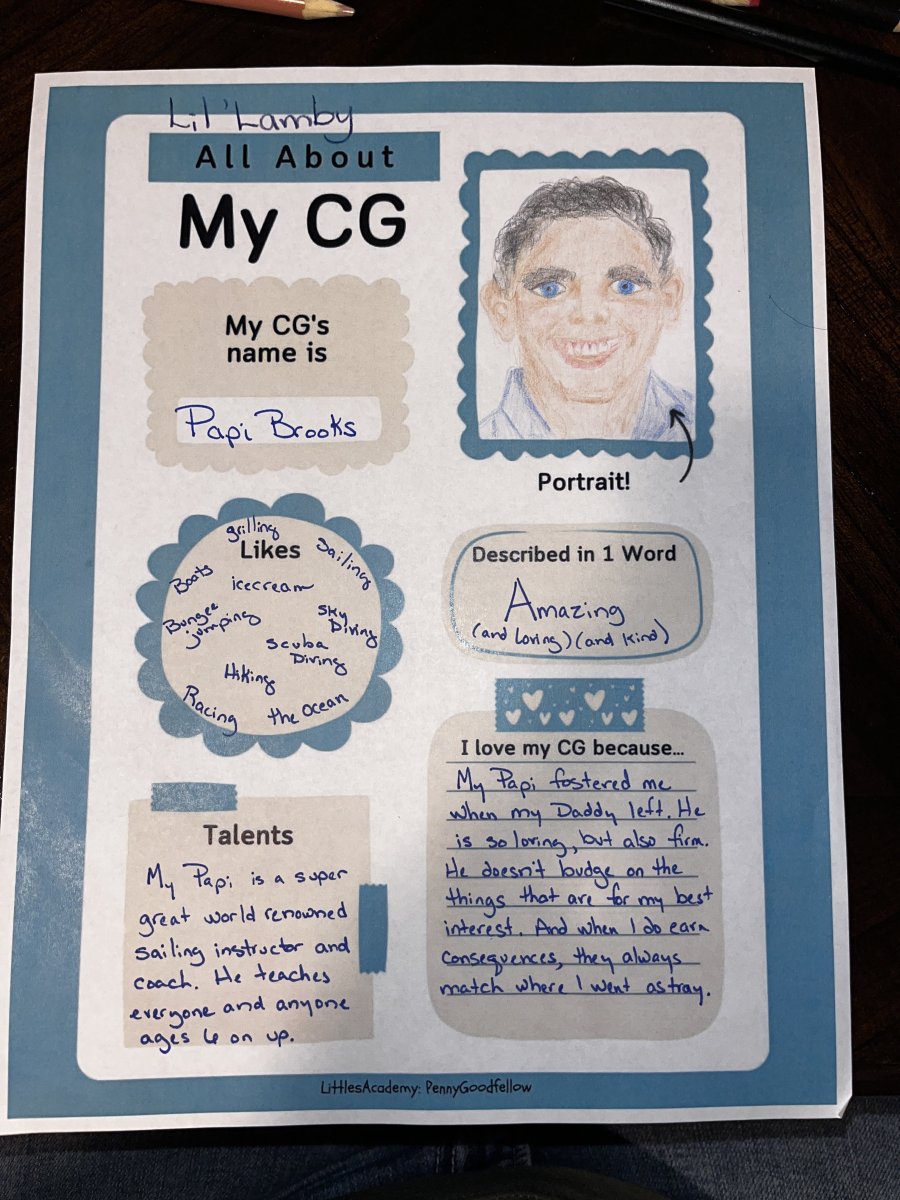 Lil' Lamby
All About
My CG
My CG's
name is
Papi Brooks
Portrait!
Likes
grilling
Sailing
Boats
icecream
Bungee
jumping
Sky
Diving
Scuba
Diving
Hiking
Racing
the Ocean
Described in 1 Word
Amazing
(and loving) (and kind)
Talents
My Papi is a super
great world renowned
sailing instructor and
coach. He teaches
everyone and anyone
ages 6 on up.
I love my CG because...
My Papi fostered me
when my Daddy left. He
is so loving, but also firm.
He doesn't budge on the
things that are for my best
interest. And when I do earn
consequences, they always
match where I went astray.
LittlesAcademy: PennyGoodfellow